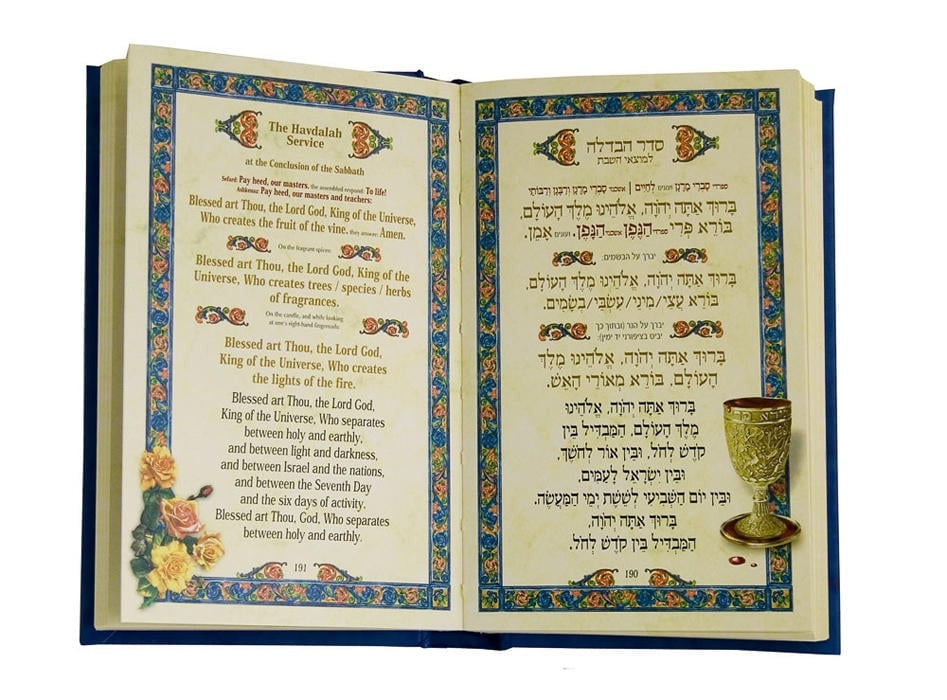 סדר הבדלה
למוצאי השבת
ספרדי סַבְרֵי מָרָנָן ועונים לְחַיִּים | אשכנזי סַבְרֵי מָרָנָן וְרַבָּנָן וְרַבּוֹתַי
בָּרוּךְ אַתָּה יְהֹוָה, אֱלֹהֵינוּ מֶלֶךְ הָעוֹלָם,
בּוֹרֵא פְּרִי ספרדי הַגֶּפֶן אשכנזי הַגָּפֶן. ועונים אָמֵן.
יברך על הבשמים:
בָּרוּךְ אַתָּה יְהֹוָה, אֱלֹהֵינוּ מֶלֶךְ הָעוֹלָם,
בּוֹרֵא עֲצֵי/מִינֵי/עִשְׂבֵּי/בְשָׂמִים.
יברך על הנר (ובתוך כך
יביט בציפורני יד ימין):
בָּרוּךְ אַתָּה יְהֹוָה, אֱלֹהֵינוּ מֶלֶךְ
הָעוֹלָם, בּוֹרֵא מְאוֹרֵי הָאֵשׁ.
בָּרוּךְ אַתָּה יְהֹוָה, אֱלֹהֵינוּ
מֶלֶךְ הָעוֹלָם, הַמַּבְדִּיל בֵּין
קֹדֶשׁ לְחֹל, וּבֵין אוֹר לְחֹשֶׁךְ,
וּבֵין יִשְׂרָאֵל לָעַמִּים,
וּבֵין יוֹם הַשְּׁבִיעִי לְשֵׁשֶׁת יְמֵי הַמַּעֲשֶׂה.
בָּרוּךְ אַתָּה יְהֹוָה,
הַמַּבְדִּיל בֵּין קֹדֶשׁ לְחֹל.
190
The Havdalah
Service
at the Conclusion of the Sabbath
Sefard: Pay heed, our masters. the assembled respond: To life!
Ashkenaz: Pay heed, our masters and teachers:
Blessed art Thou, the Lord God, King of the Universe,
Who creates the fruit of the vine. they answer: Amen.
On the fragrant spices:
Blessed art Thou, the Lord God, King of the
Universe, Who creates trees / species / herbs
of fragrances.
On the candle, and while looking
at one's right-hand fingernails:
Blessed art Thou, the Lord God,
King of the Universe, Who creates
the lights of the fire.
Blessed art Thou, the Lord God,
King of the Universe, Who separates
between holy and earthly,
and between light and darkness,
and between Israel and the nations,
and between the Seventh Day
and the six days of activity.
Blessed art Thou, God, Who separates
between holy and earthly.
191